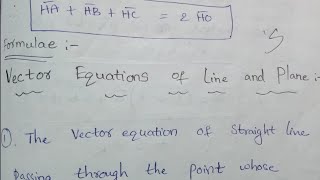 H̅A̅ + H̅B̅ + H̅C̅ = 2 H̅O̅
Formulae :-
Vector Equations of Line and Plane :-
①. The Vector equation of straight line
passing through the point whose